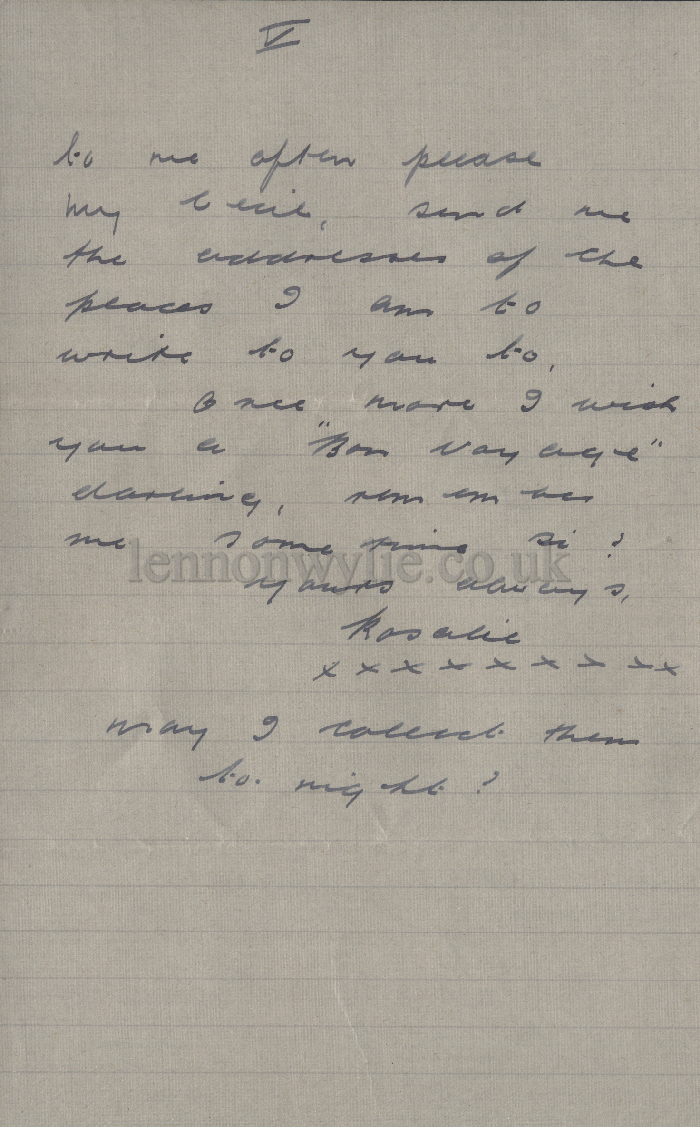 V
to me often please
my Cecil, send me
the addresses of the
places I am to
write to you to,
Once more I wish
you a "Bon Voyage"
darling, remember
me sometime
lennonwylie.co.uk
yours always,
Rosalie
x x x x x x x x x
may I collect them
to. night?